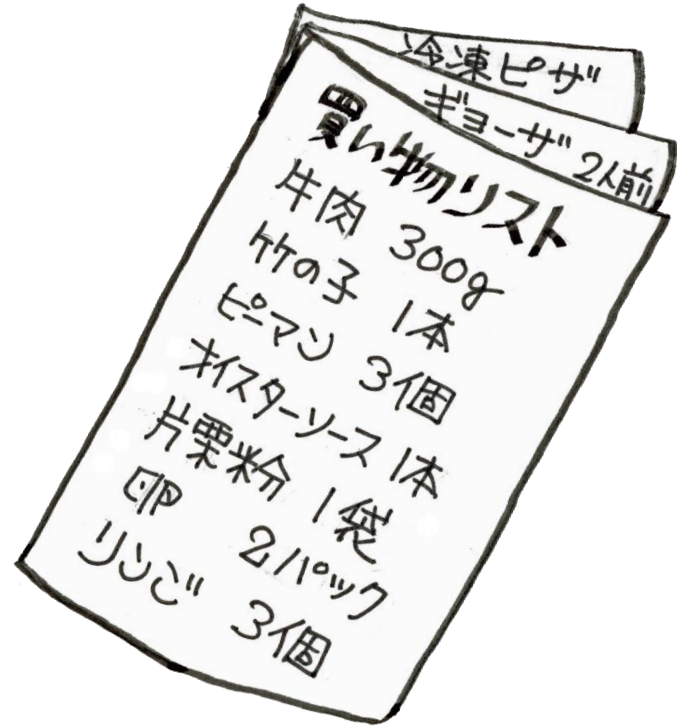 冷凍ピザ
ギョーザ 2人前
買い物リスト
牛肉 300g
竹の子 1本
ピーマン 3個
オイスターソース 1本
片栗粉 1袋
卵 2パック
リンゴ 3個